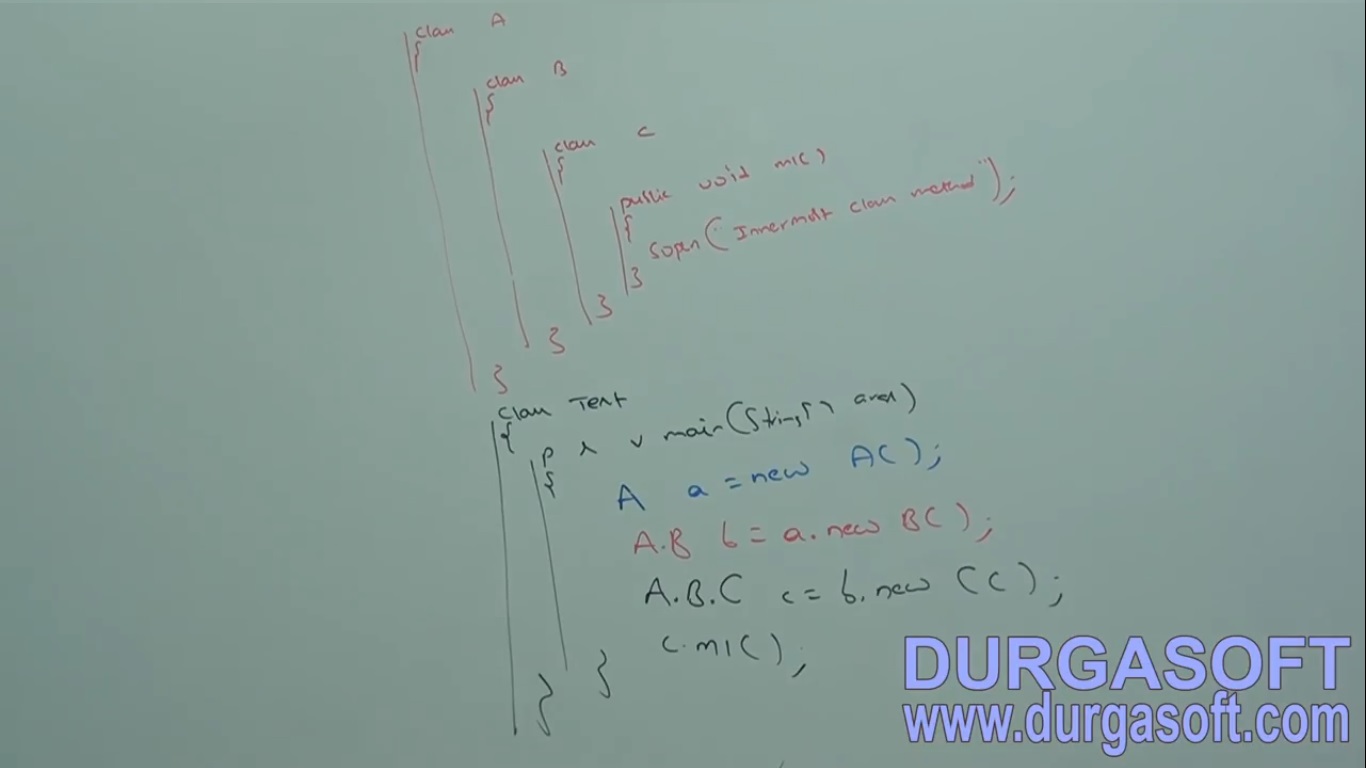 class A
{
class B
{
class C
{
public void m1()
{
Sopln("Innermost class method");
}
}
}
}
class Test
{
p s v main(String[] args)
{
A a = new A();
A.B b = a.new B();
A.B.C c = b.new C();
c.m1();
}
}
DURGASOFT
www.durgasoft.com